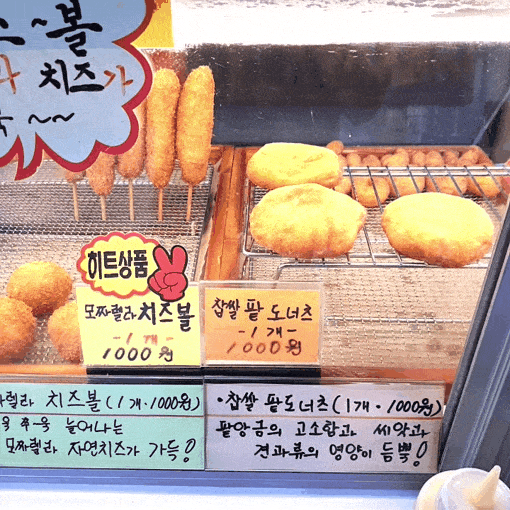 볼
치즈가
~~
히트상품
모짜렐라 치즈볼
-1개-
1000원
찹쌀 팥 도너츠
-1개-
1000원
치즈볼 (1개·1000원)
쭈-욱 늘어나는
모짜렐라 자연치즈가 가득!
·찹쌀 팥도너츠 (1개·1000원)
팥앙금의 고소함과 씨앗과
견과류의 영양이 듬뿍!